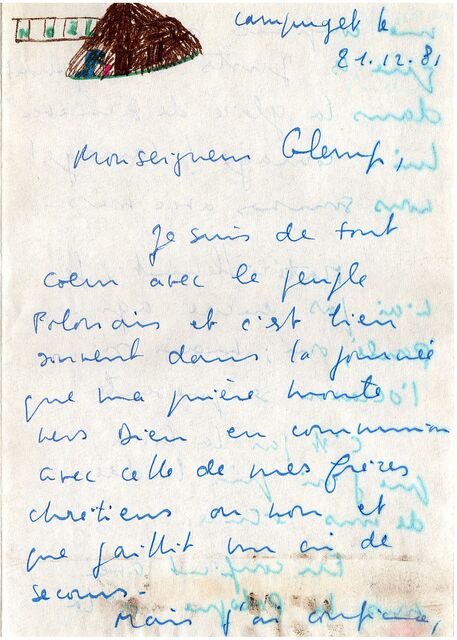 NOEL
Campuget le
21.12.81
Monseigneur Glemp,
Je suis de tout
coeur avec le peuple
Polonais et c'est bien
souvent dans la journée
que ma prière monte
vers Dieu en communion
avec celle de mes frères
chrétiens ou non et
que jaillit un cri de
secours.
Mais j'ai confiance,